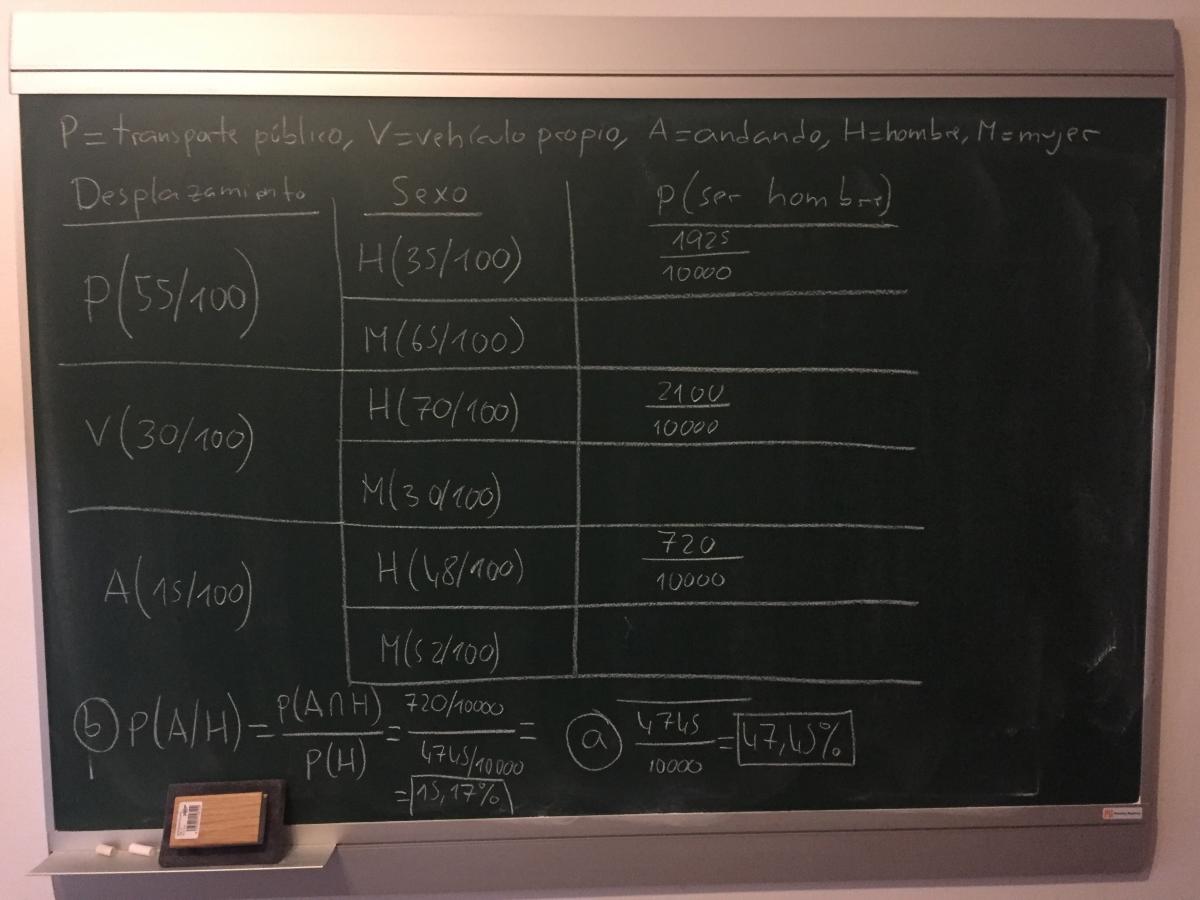 P=transporte público, V=vehículo propio, A=andando, H=hombre, M=mujer
Desplazamiento Sexo p(ser hombre)
P(55/100) H(35/100) 1925/10000
M(65/100)
V(30/100) H(70/100) 2100/10000
M(30/100)
A(15/100) H(48/100) 720/10000
M(52/100)
b) P(A/H) = p(A∩H)/p(H) = 720/10000 / 4745/10000 =
= 15,17%
a) 4745/10000 = 47,45%